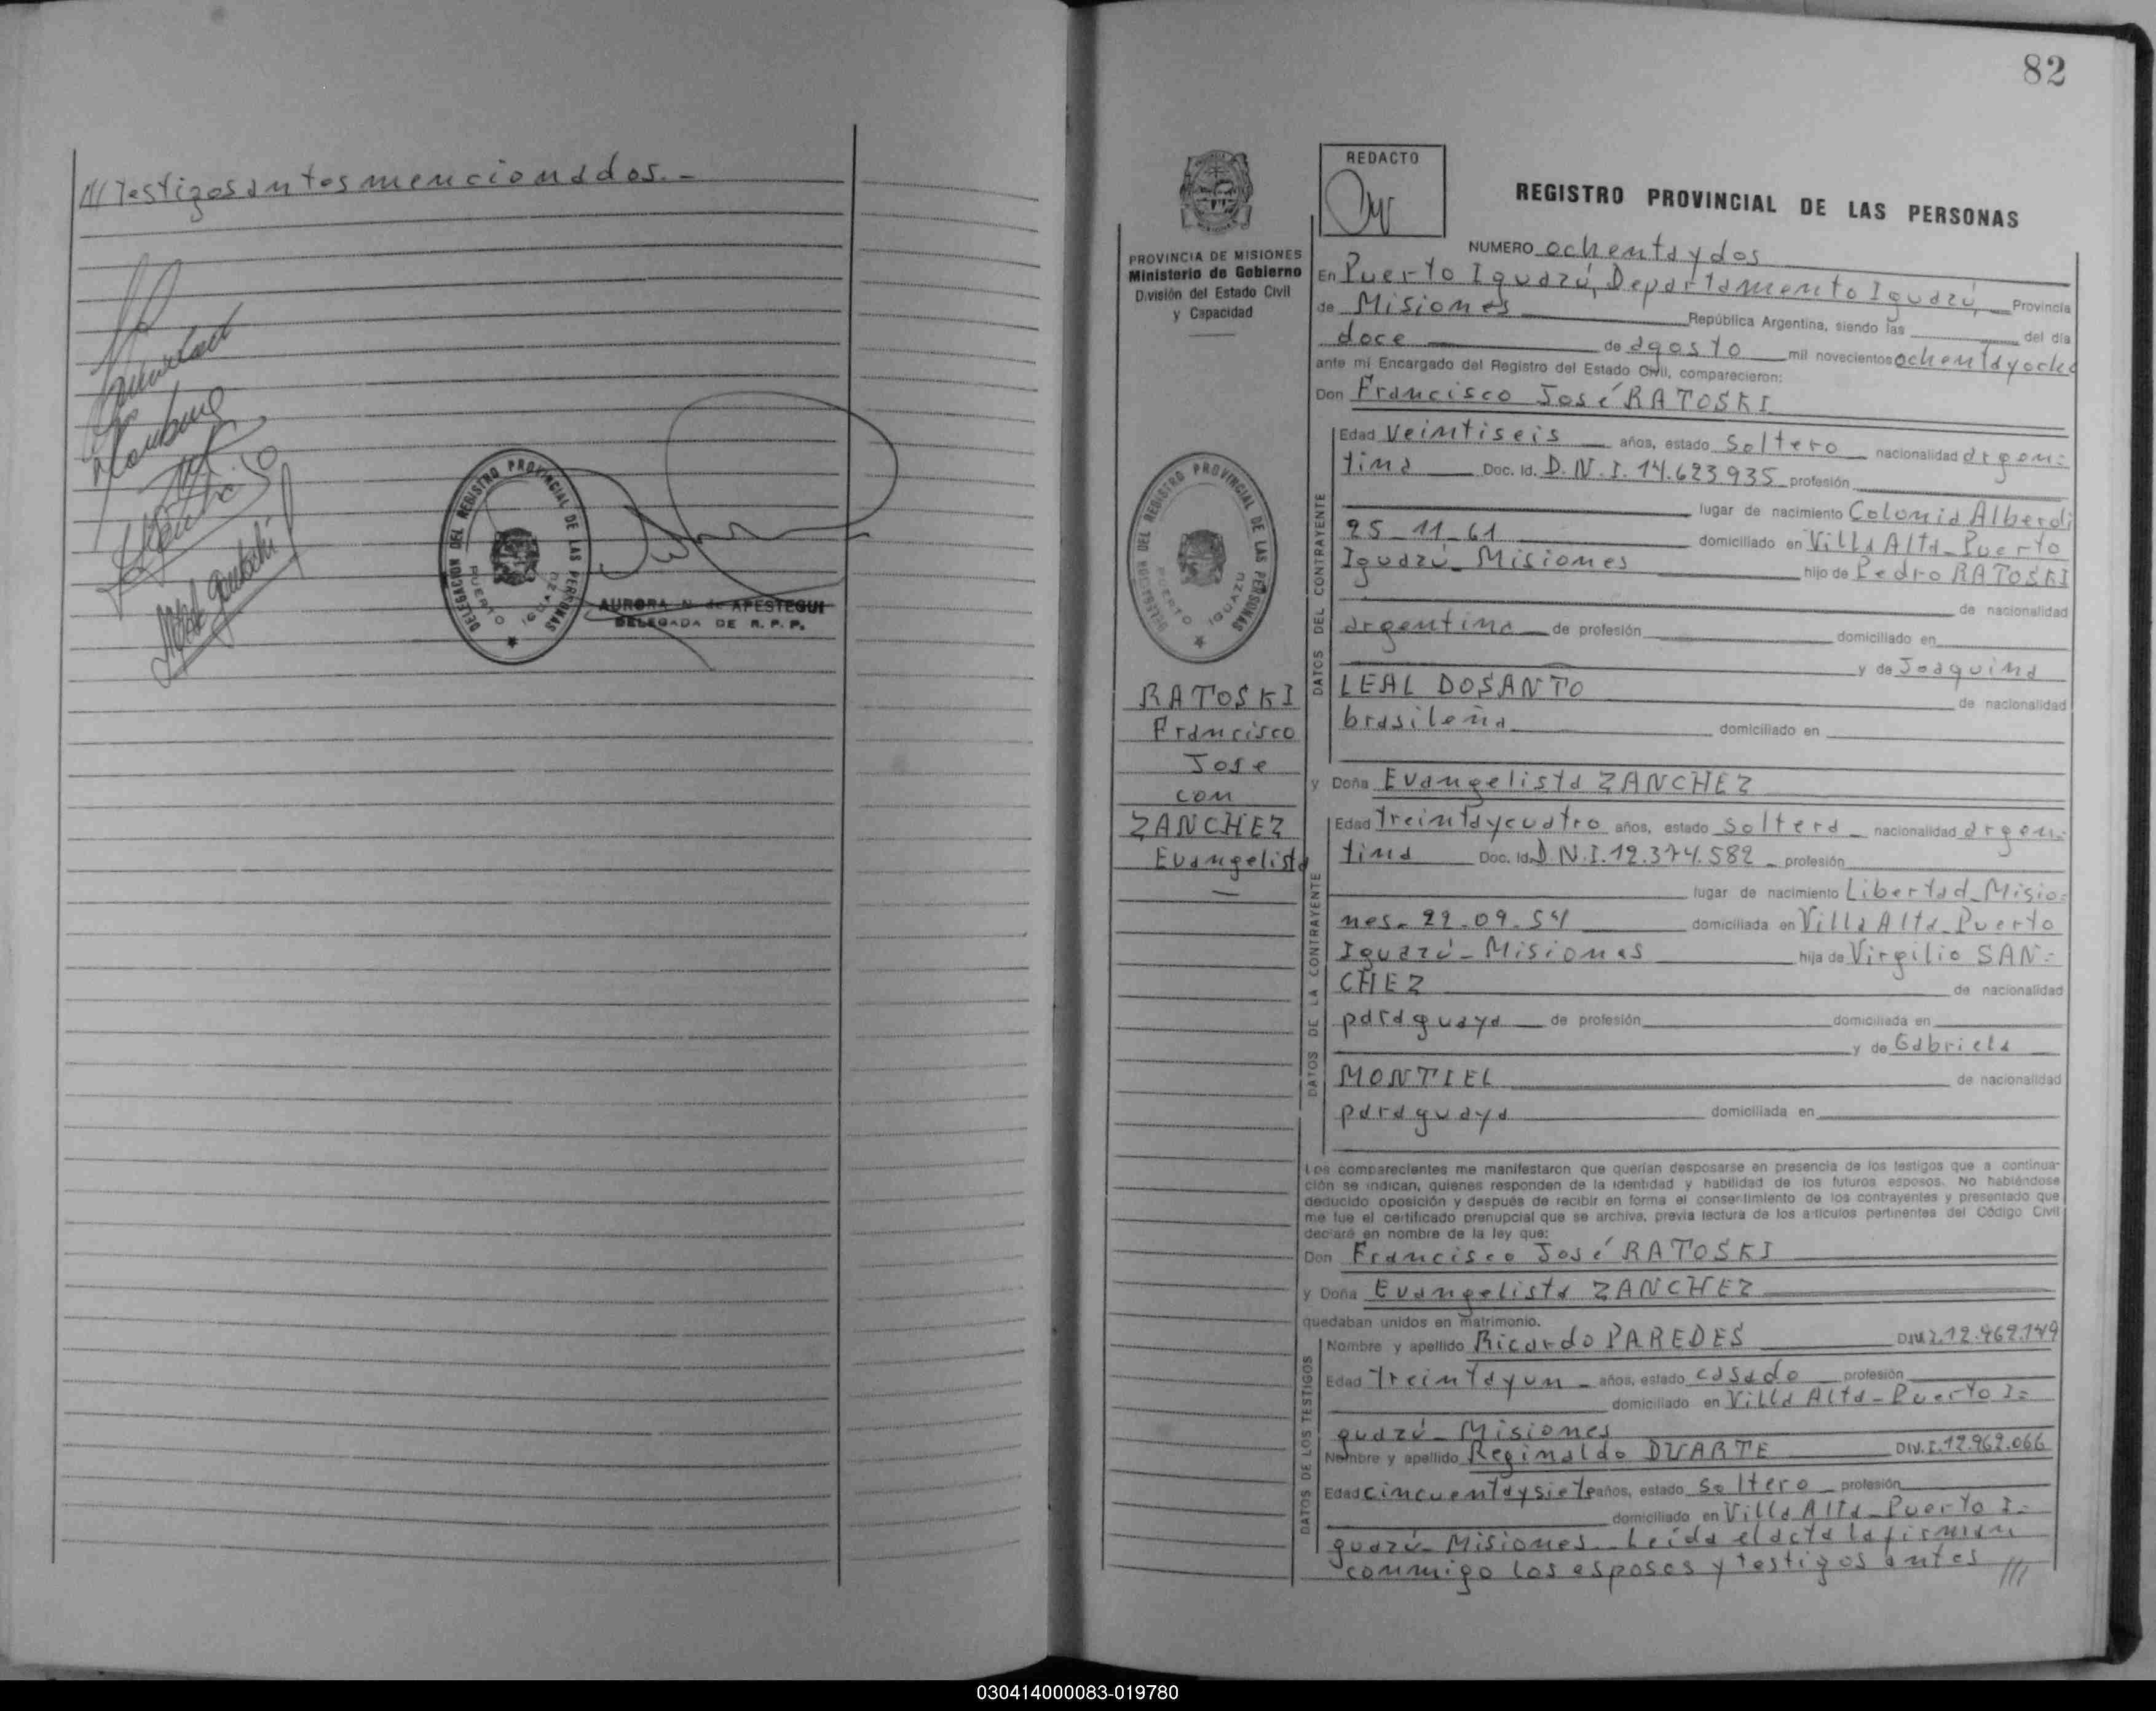 /// Testigos antes mencionados.-
DELEGACION DEL REGISTRO PROVINCIAL DE LAS PERSONAS
PUERTO IGUAZU
AURORA N. de APESTEGUI
DELEGADA DE R. P. P.
82
REDACTO
REGISTRO PROVINCIAL DE LAS PERSONAS
PROVINCIA DE MISIONES
Ministerio de Gobierno
División del Estado Civil
y Capacidad
DELEGACION DEL REGISTRO PROVINCIAL DE LAS PERSONAS
PUERTO IGUAZU
RATOSKI
Francisco
Jose
con
ZANCHEZ
Evangelista
NUMERO ochentaydos
En Puerto Iguazú, Departamento Iguazú, Provincia
de Misiones República Argentina, siendo las del día
doce de agosto mil novecientos ochentayocho
ante mí Encargado del Registro del Estado Civil, comparecieron:
Don Francisco José RATOSKI
DATOS DEL CONTRAYENTE
Edad Veintiseis años, estado Soltero nacionalidad argen=
tina Doc. Id. D.N.I. 14.623.935 profesión
lugar de nacimiento Colonia Alberdi
25-11-61 domiciliado en Villa Alta-Puerto
Iguazú-Misiones hijo de Pedro RATOSKI
de nacionalidad
argentina de profesión domiciliado en
y de Joaquina
LEAL DOSANTO de nacionalidad
brasileña domiciliado en
y Doña Evangelista ZANCHEZ
DATOS DE LA CONTRAYENTE
Edad Treintaycuatro años, estado Soltera nacionalidad argen=
tina Doc. Id. D.N.I. 12.374.582 profesión
lugar de nacimiento Libertad-Misio=
nes-22-09-54 domiciliada en Villa Alta-Puerto
Iguazú-Misiones hija de Virgilio SAN=
CHEZ de nacionalidad
paraguaya de profesión domiciliada en
y de Gabriela
MONTIEL de nacionalidad
paraguaya domiciliada en
Los comparecientes me manifestaron que querían desposarse en presencia de los testigos que a continua-
ción se indican, quienes responden de la identidad y habilidad de los futuros esposos. No habiéndose
deducido oposición y después de recibir en forma el consentimiento de los contrayentes y presentado que
me fue el certificado prenupcial que se archiva, previa lectura de los artículos pertinentes del Código Civil
declaré en nombre de la ley que:
Don Francisco José RATOSKI
y Doña Evangelista ZANCHEZ
quedaban unidos en matrimonio.
DATOS DE LOS TESTIGOS
Nombre y apellido Ricardo PAREDES DNI.12.962.149
Edad Treintayun años, estado casado profesión
domiciliado en Villa Alta-Puerto I=
guazú-Misiones
Nombre y apellido Reginaldo DUARTE DNI.12.962.066
Edad cincuentaysiete años, estado Soltero profesión
domiciliado en Villa Alta-Puerto I=
guazú-Misiones. Leída el acta la firman
conmigo los esposos y testigos antes ///
030414000083-019780